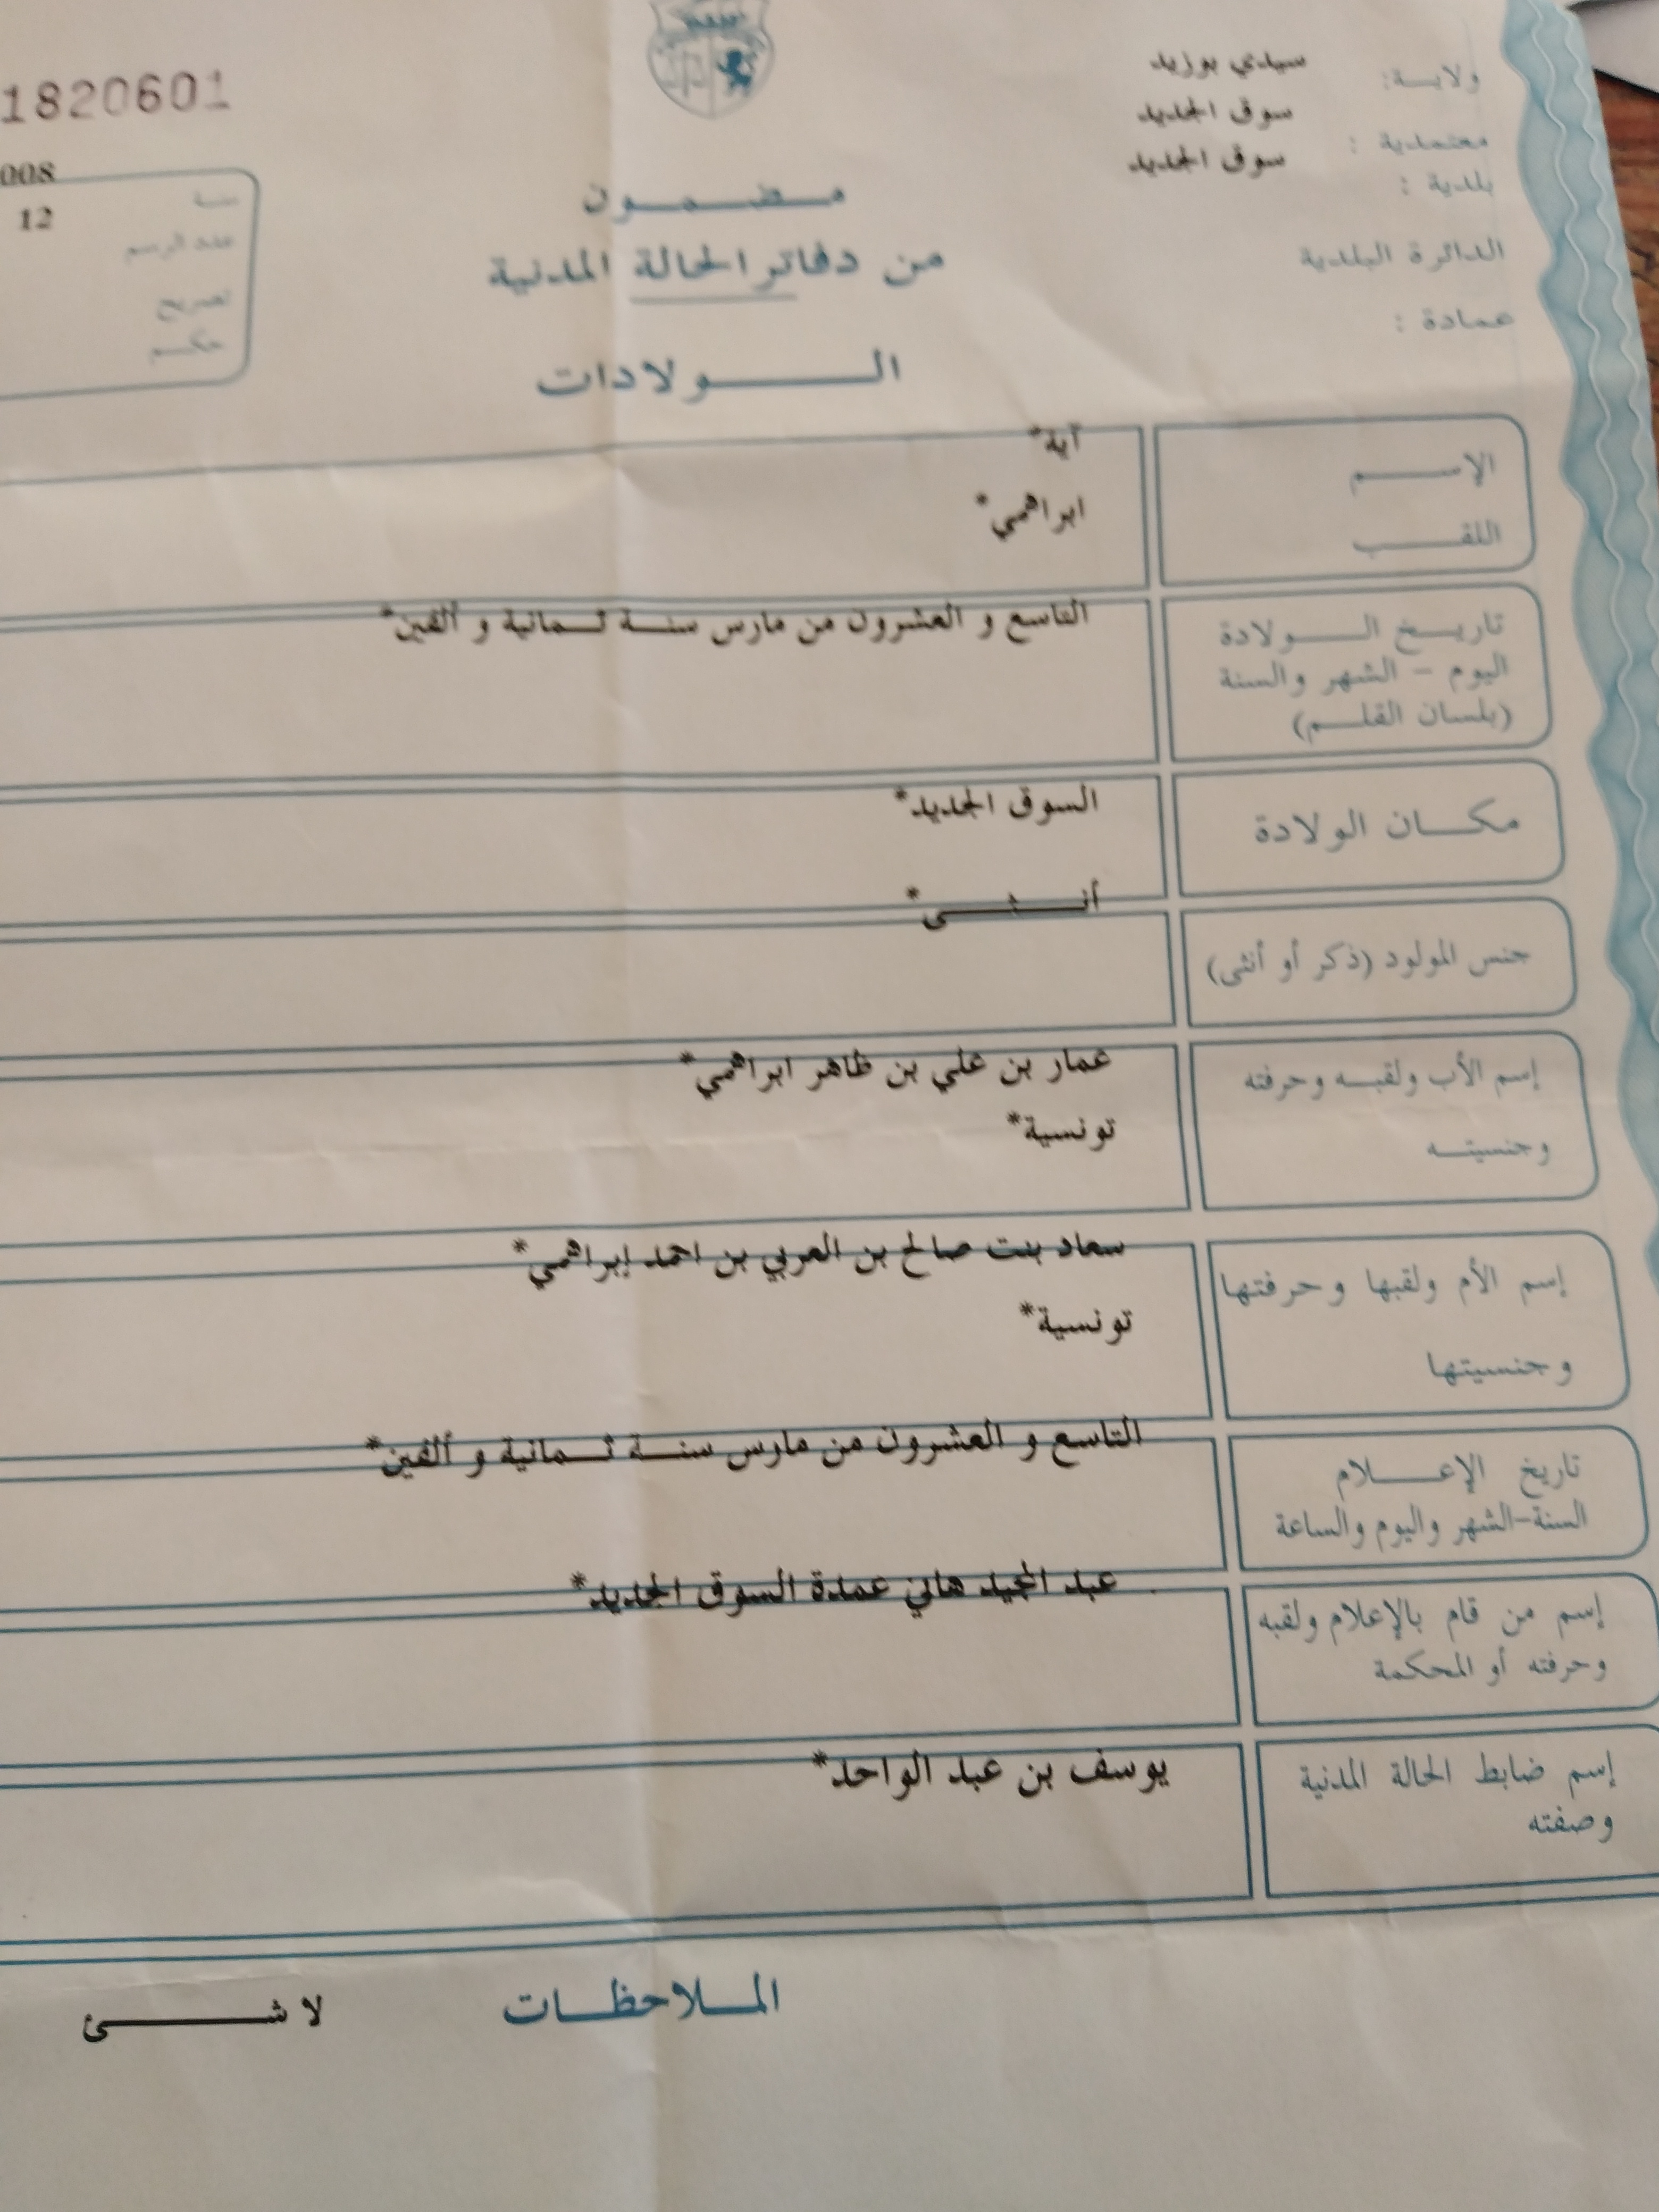 1820601
ولاية: سيدي بوزيد
معتمدية : سوق الجديد
بلدية : سوق الجديد
الدائرة البلدية
عمادة :
008
سنة
12
عدد الرسم
تصريح
حكم
مضمون
من دفاتر الحالة المدنية
الولادات
الإسم
آية*
اللقب
ابراهمي*
تاريخ الولادة
اليوم - الشهر والسنة
(بلسان القلم)
التاسع و العشرون من مارس سنة ثمانية و ألفين*
مكان الولادة
السوق الجديد*
جنس المولود (ذكر أو أنثى)
أنثى*
إسم الأب ولقبه وحرفته
وجنسيته
عمار بن علي بن ظاهر ابراهمي*
تونسية*
إسم الأم ولقبها وحرفتها
وجنسيتها
سعاد بنت صالح بن العربي بن احمد إبراهمي*
تونسية*
تاريخ الإعلام
السنة-الشهر واليوم والساعة
التاسع و العشرون من مارس سنة ثمانية و ألفين*
إسم من قام بالإعلام ولقبه
وحرفته أو المحكمة
عبد المجيد هاني عمدة السوق الجديد*
إسم ضابط الحالة المدنية
وصفته
يوسف بن عبد الواحد*
الملاحظات
لا شئ